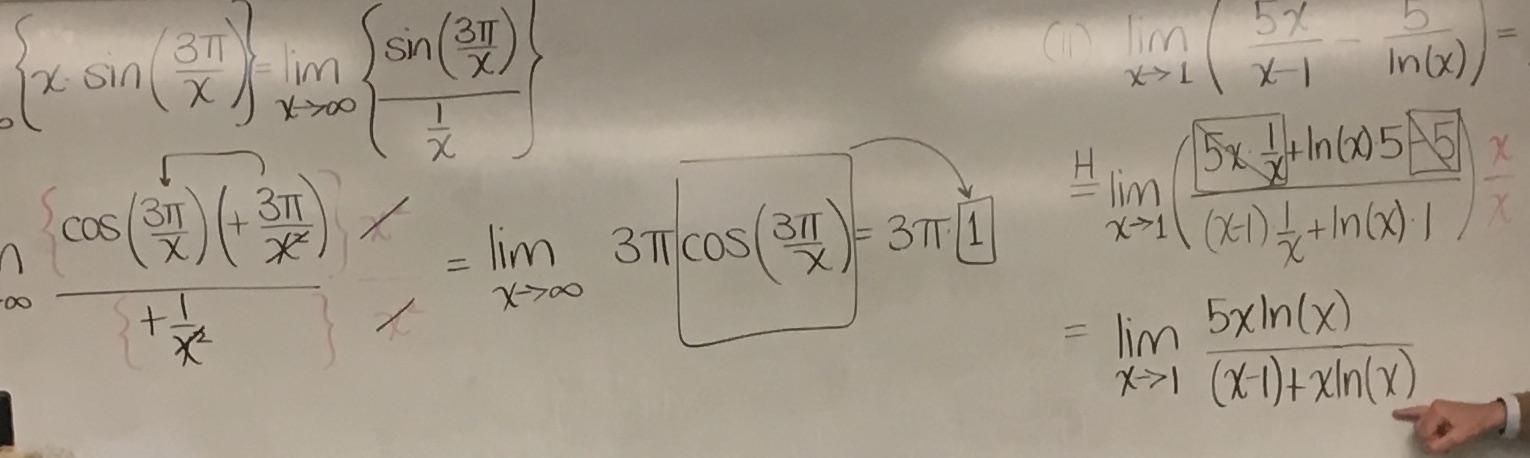 {x · sin(3π/x)} = lim x→∞ {sin(3π/x) / (1/x)}
{cos(3π/x)(+3π/x²)} x² / {+1/x²} x² = lim x→∞ 3π cos(3π/x) = 3π · 1
(ii) lim x→1 (5x/(x-1) - 5/ln(x)) =
H= lim x→1 ((5x · 1/x + ln(x) 5 - 5) / ((x-1) 1/x + ln(x) · 1)) x/x
= lim x→1 5x ln(x) / ((x-1) + x ln(x))